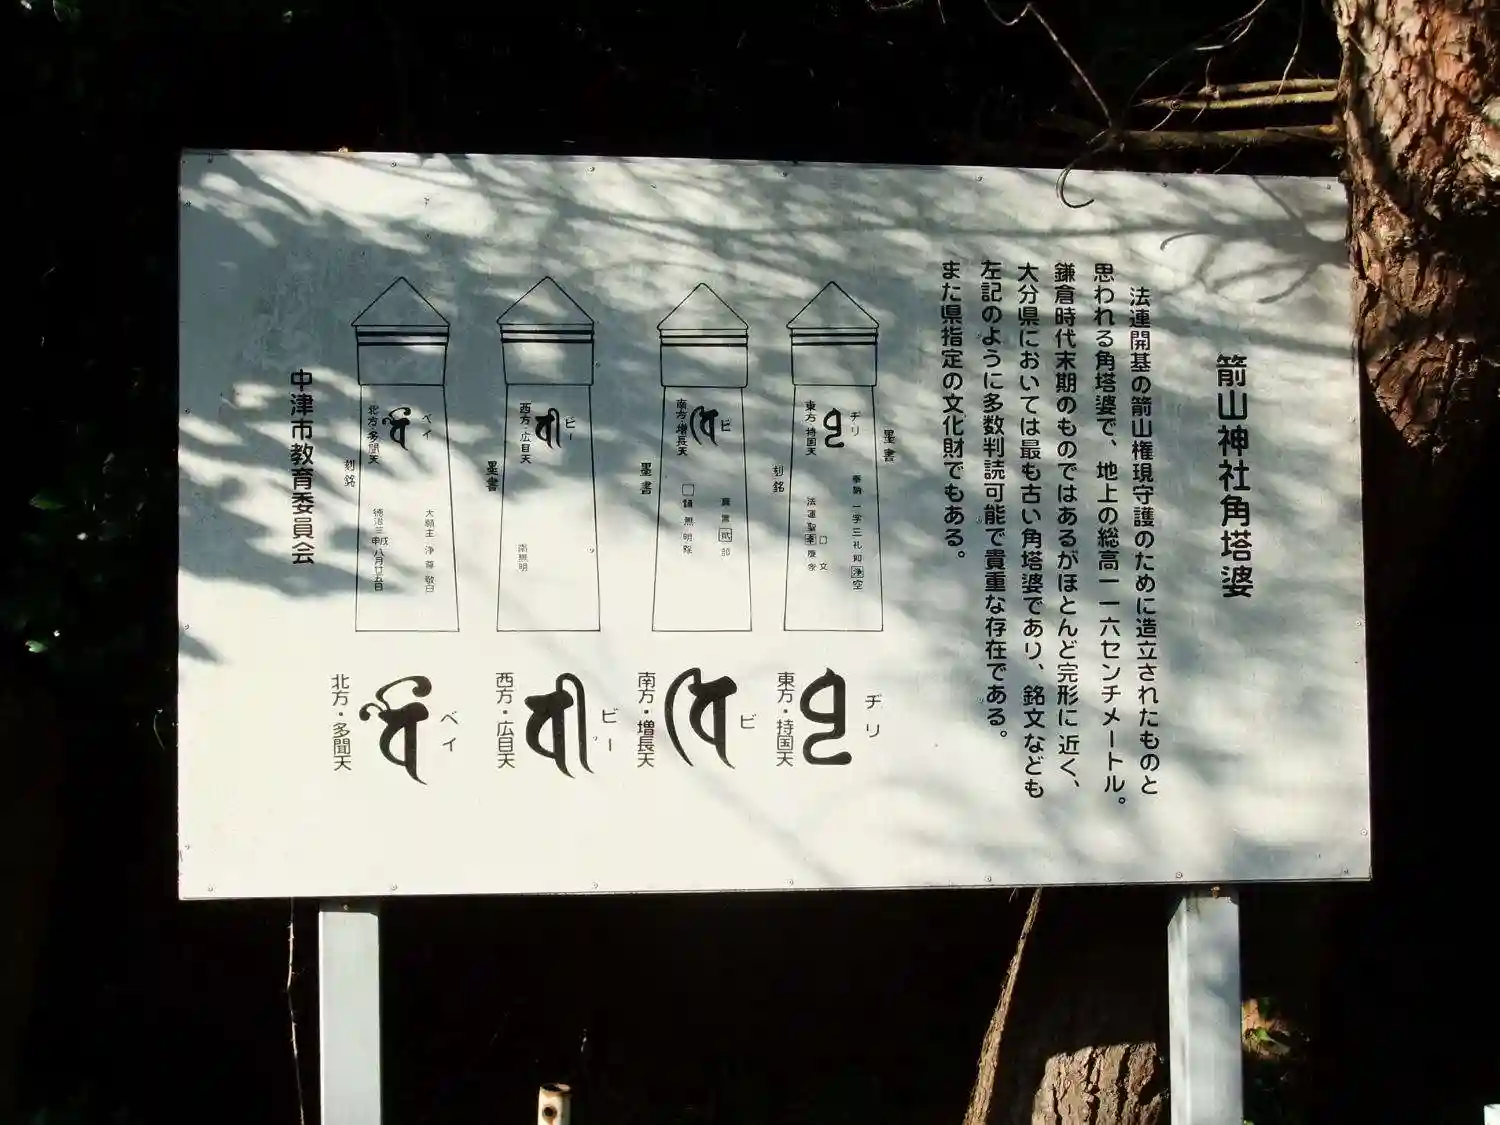 箭山神社角塔婆
法連開基の箭山権現守護のために造立されたものと
思われる角塔婆で、地上の総高一一六センチメートル。
鎌倉時代末期のものではあるがほとんど完形に近く、
大分県においては最も古い角塔婆であり、銘文なども
左記のように多数判読可能で貴重な存在である。
また県指定の文化財でもある。
墨書
ヂリ
東方・持国天
奉納一字三礼
刻銘
ビ
南方・増長天
墨書
ビー
西方・広目天
南無明
墨書
ベイ
北方・多聞天
大願主 浄尊 敬白
八月廿五日
刻銘
ヂリ
東方・持国天
ビ
南方・増長天
ビー
西方・広目天
ベイ
北方・多聞天
中津市教育委員会